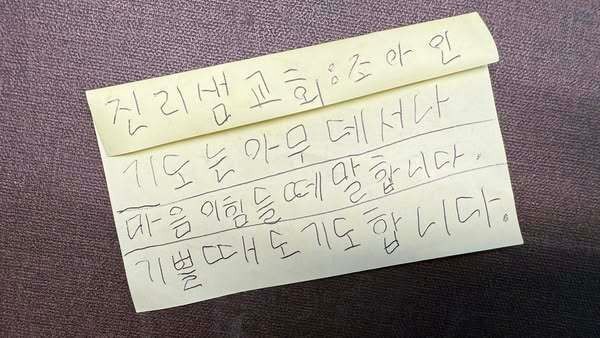 진리샘교회:조아인
기도는아무데서나
마음이힘들떼말합니다.
기쁠때도기도합니다.